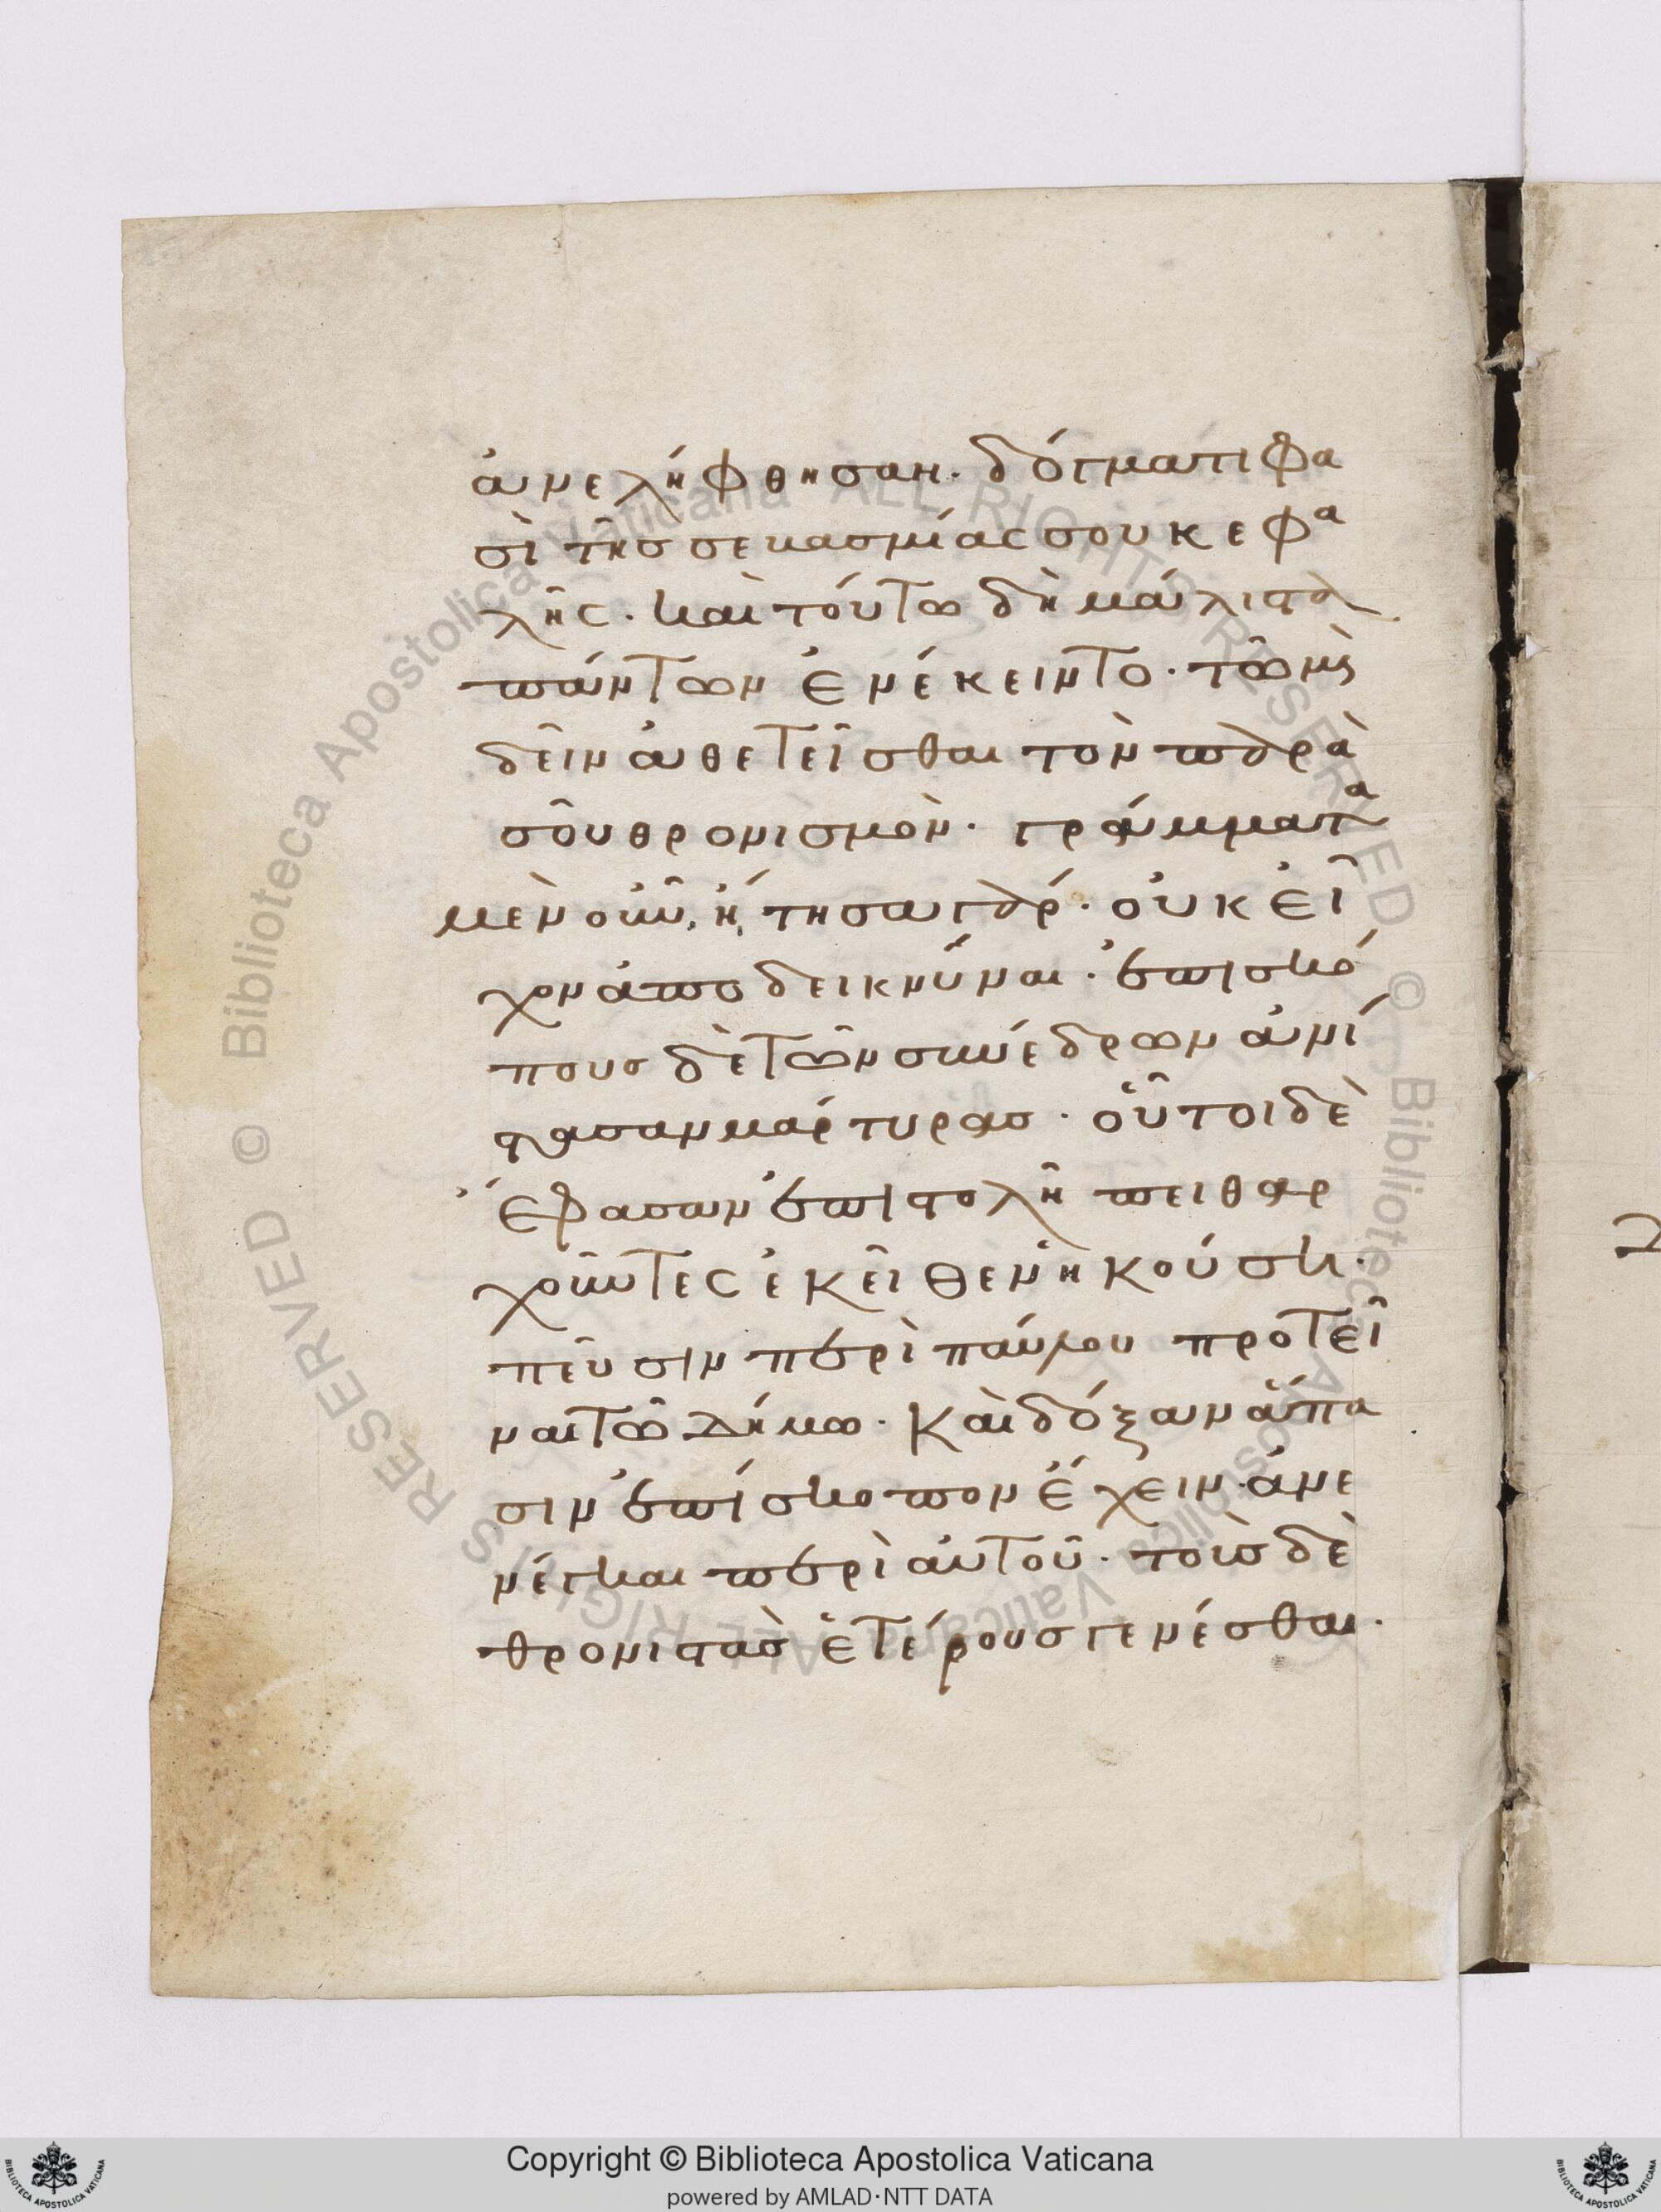 ἀνελήφθησαν. δόγματι φα
σὶ τῆς σεβασμίας σου κεφα
λῆς. καὶ τούτω δὴ μάλιστα
πάντων ἐνέκειντο. τῶ μὴ
δεῖν ἀθετεῖσθαι τὸν παρὰ
σοῦ θρονισμὸν. γράμματα
μὲν οὖν, ἤτησα γάρ. οὐκ εἶ
χον ἀποδεικνύναι. ἐπισκό
πους δὲ τῶν συνέδρων ἀνί
στασαν μάρτυρας. οὗτοι δὲ
ἔφασαν ἐπιστολῆ πειθαρ
χοῦντες ἐκεῖθεν ἡκούση.
πεῦσιν περὶ παύλου προτεῖ
ναι τῶ δήμω. καὶ δόξαν ἅπα
σιν ἐπίσκοπον ἔχειν. ἀνε
νέγκαι περὶ αὐτοῦ. τοὺς δὲ
θρονιστὰς ἑτέρους γενέσθαι.
© Biblioteca Apostolica Vaticana ALL RIGHTS RESERVED © Biblioteca Apostolica Vaticana ALL RIGHTS RESERVED
Copyright © Biblioteca Apostolica Vaticana
powered by AMLAD·NTT DATA